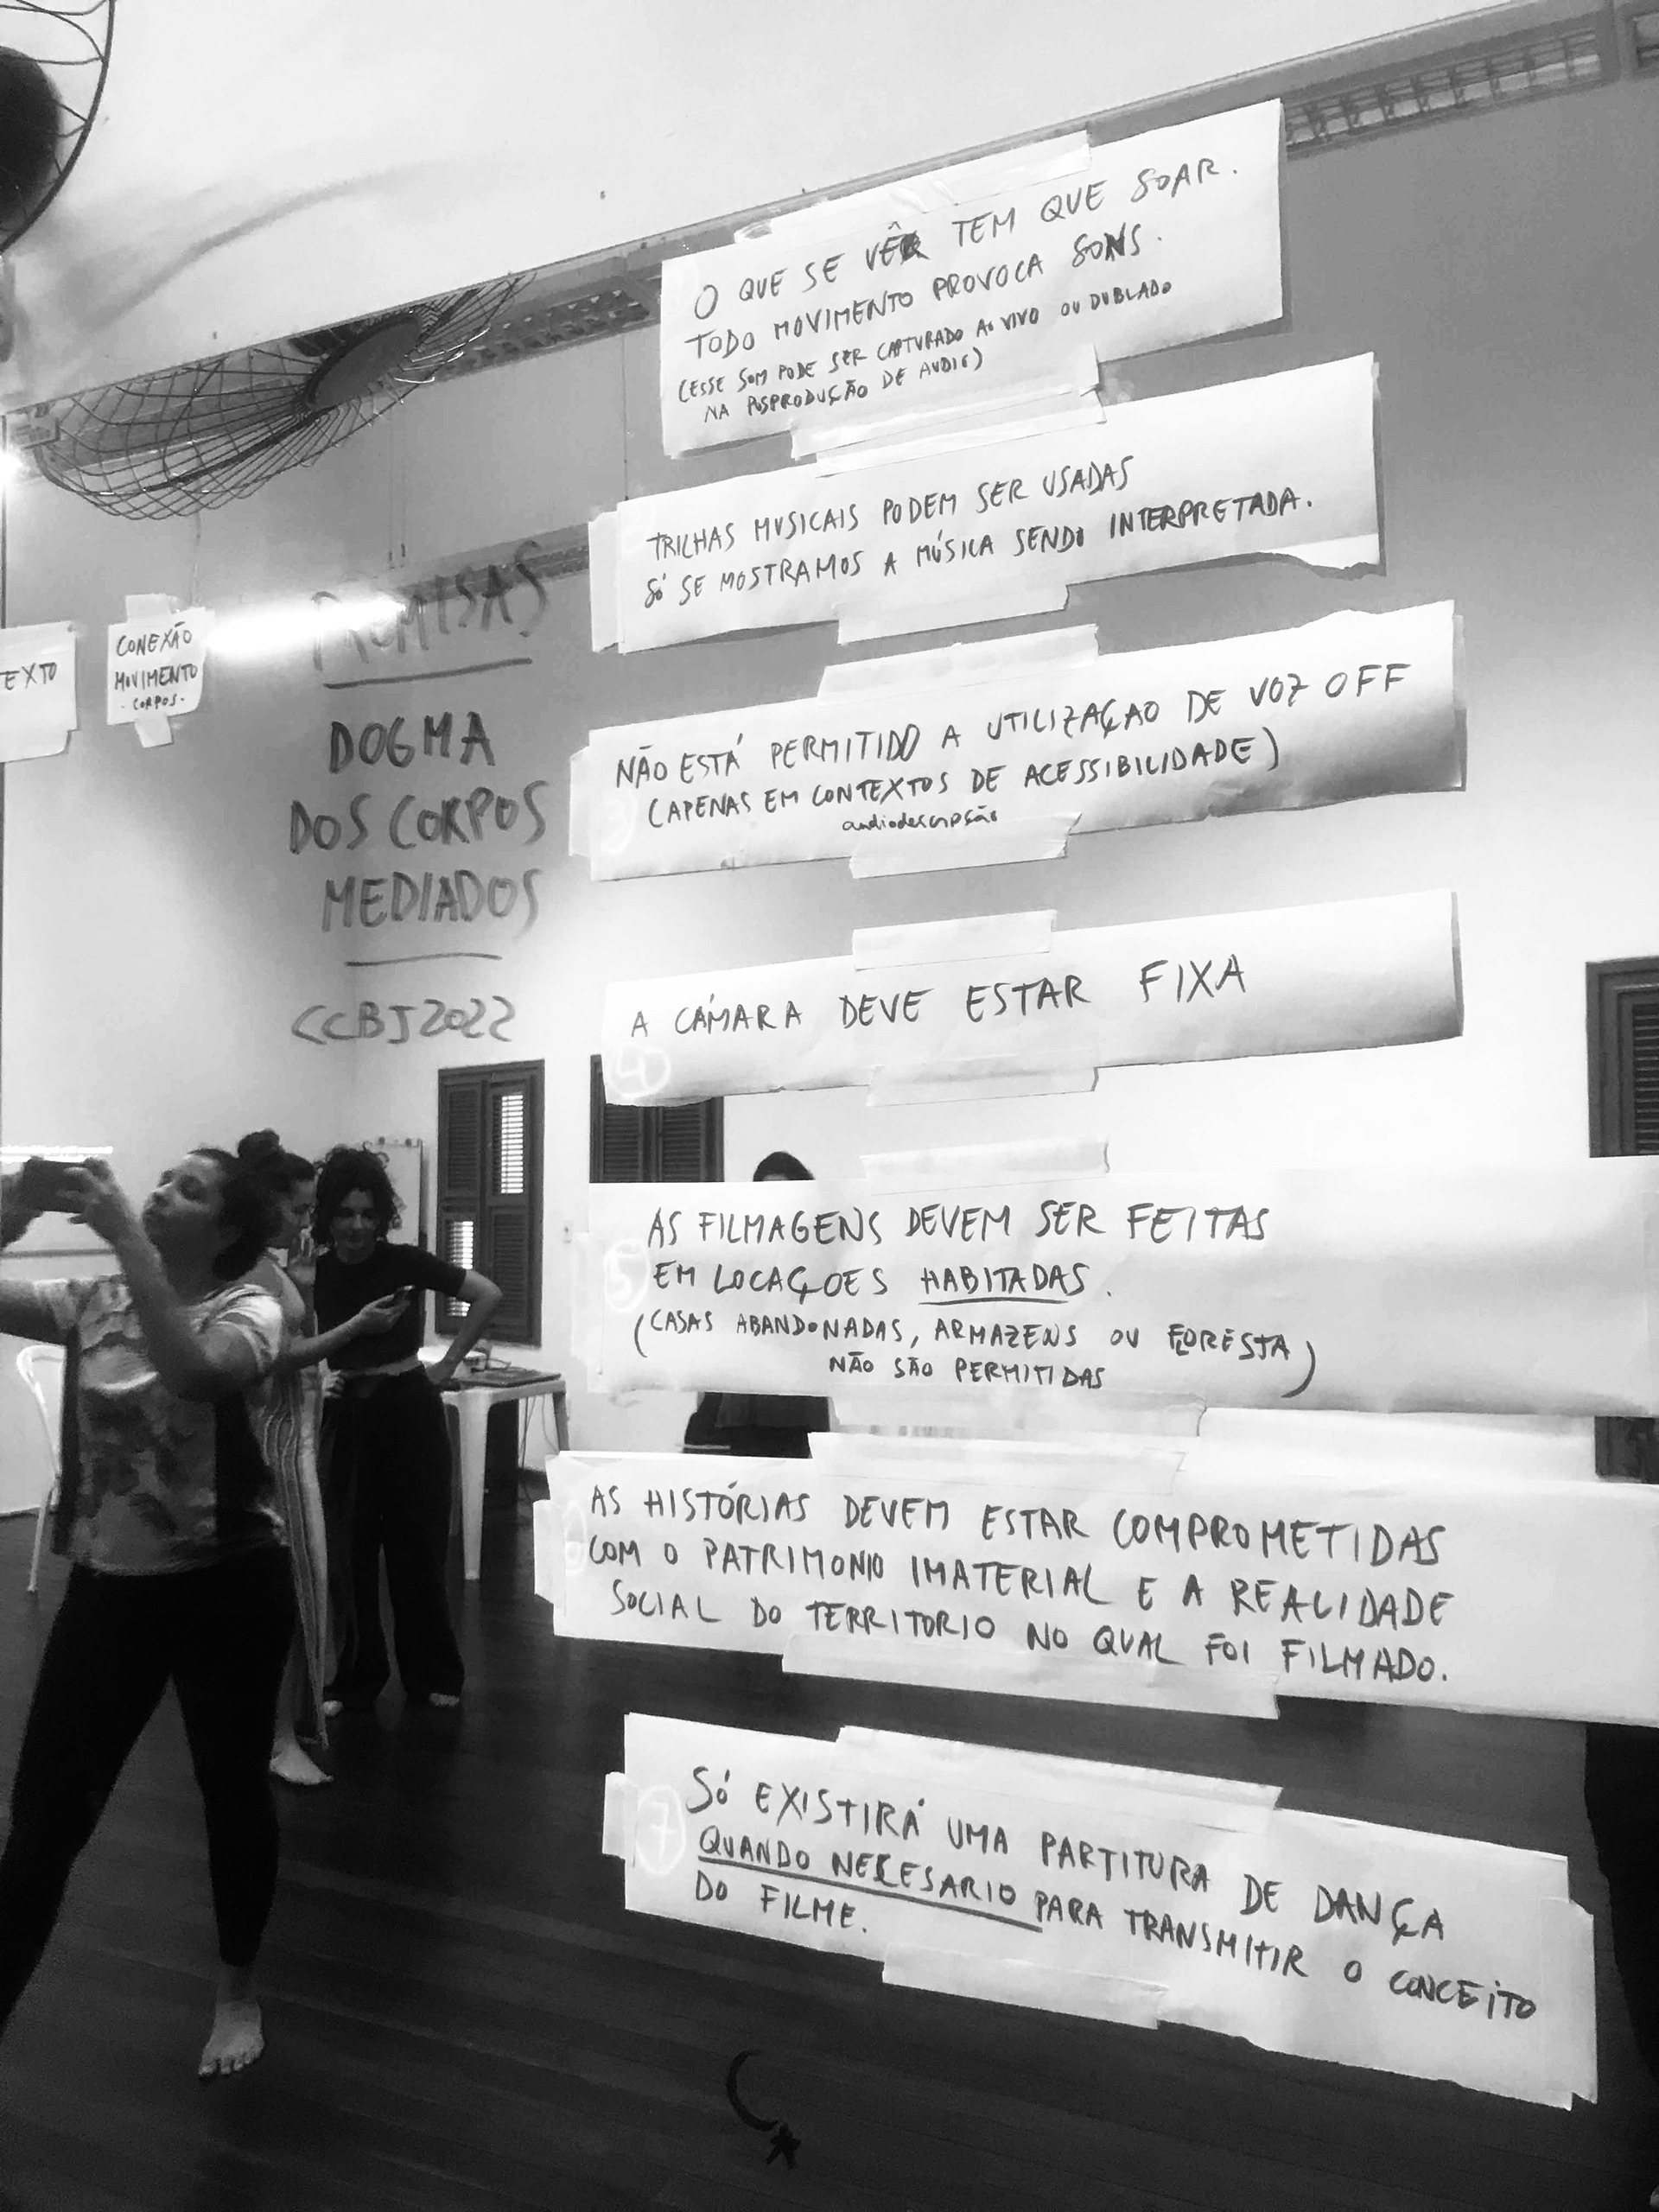 EXTO
CONEXÃO
MOVIMENTO
- CORPOS -
PREMISAS
DOGMA
DOS CORPOS
MEDIADOS
CCBJ2022
O QUE SE VÊ TEM QUE SOAR.
TODO MOVIMENTO PROVOCA SONS.
(ESSE SOM PODE SER CAPTURADO AO VIVO OU DUBLADO
NA POSPRODUÇÃO DE AUDIO)
TRILHAS MUSICAIS PODEM SER USADAS
SÓ SE MOSTRAMOS A MÚSICA SENDO INTERPRETADA.
3
NÃO ESTÁ PERMITIDO A UTILIZAÇAO DE VOZ OFF
(APENAS EM CONTEXTOS DE ACESSIBILIDADE)
audiodescripsão
4
A CÁMARA DEVE ESTAR FIXA
5
AS FILMAGENS DEVEM SER FEITAS
EM LOCAÇOES HABITADAS.
(CASAS ABANDONADAS, ARMAZENS OU FLORESTA)
NÃO SÃO PERMITIDAS
6
AS HISTÓRIAS DEVEM ESTAR COMPROMETIDAS
COM O PATRIMONIO IMATERIAL E A REALIDADE
SOCIAL DO TERRITORIO NO QUAL FOI FILMADO.
7
SÓ EXISTIRÁ UMA PARTITURA DE DANÇA
QUANDO NECESARIO PARA TRANSMITIR O CONCEITO
DO FILME.